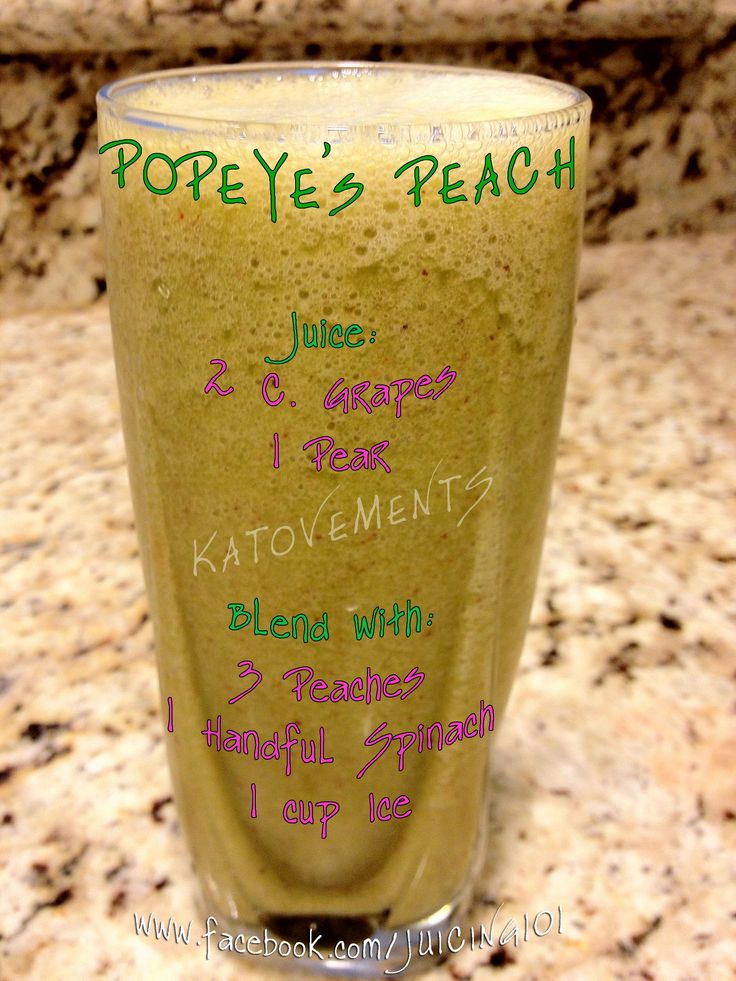 POPEYE's PEACH
Juice:
2 C. Grapes
1 Pear
KATOVEMENTS
Blend with:
3 Peaches
1 Handful Spinach
1 cup Ice
www.facebook.com/JUICING101